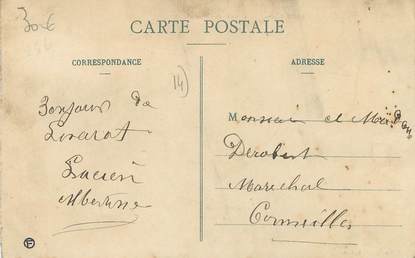 30€
CARTE POSTALE
CORRESPONDANCE
ADRESSE
14)
Bonjour de
Livarot
Lucien
Albertine
Monsieur et Mme
Derobert
Marechal
Cormeilles